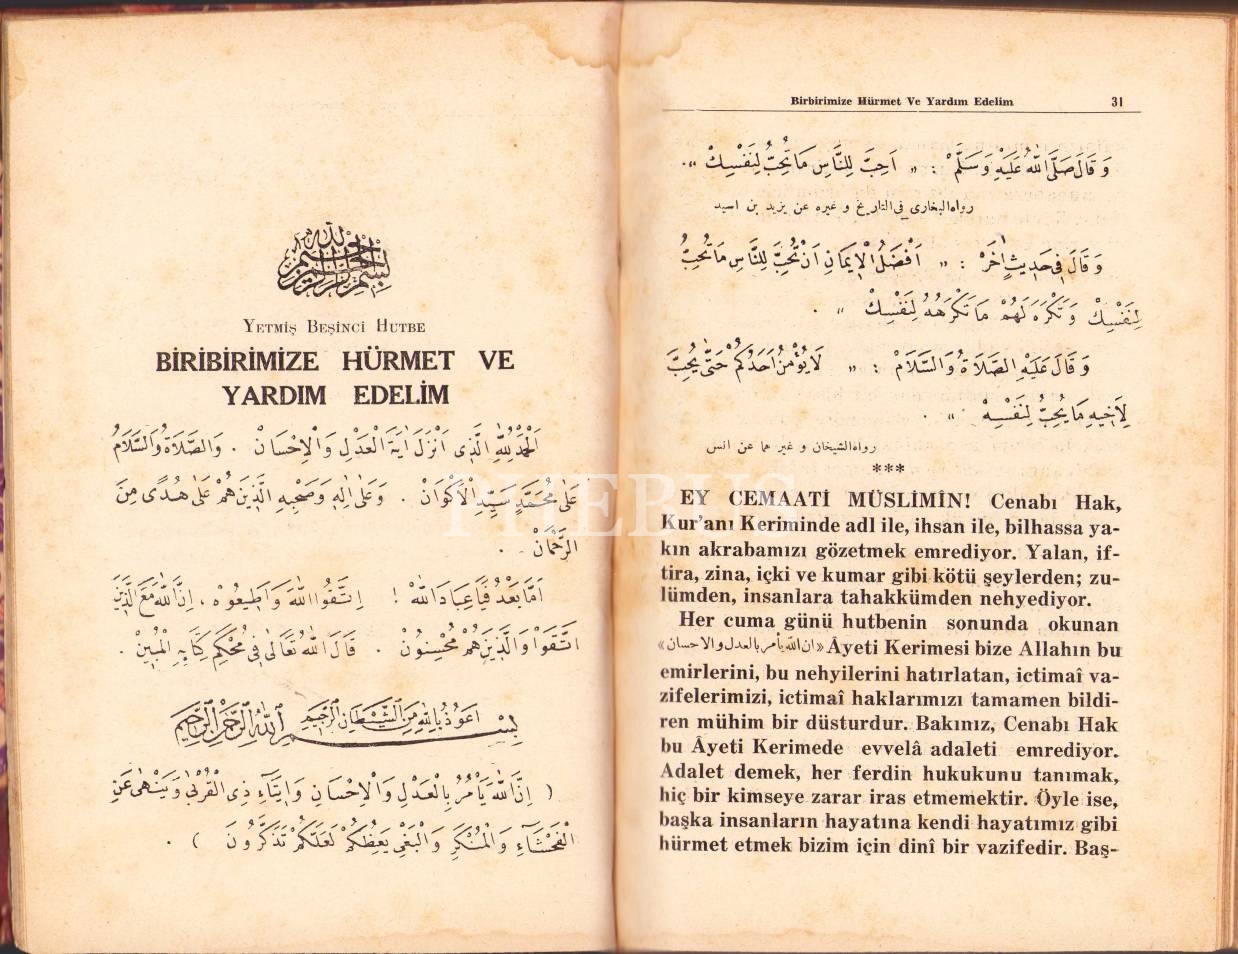 بسم الله الرحمن الرحيم
YETMİŞ BEŞİNCİ HUTBE
BİRİBİRİMİZE HÜRMET VE
YARDIM EDELİM
اَلْحَمْدُ لِلّٰهِ الَّذِى اَنْزَلَ اٰيَةَ الْعَدْلِ وَالْاِحْسَانْ . وَالصَّلَاةُ وَالسَّلَامُ
عَلٰى مُحَمَّدٍ سَيِّدِ الْاَكْوَانْ . وَعَلٰى اٰلِهِ وَصَحْبِهِ الَّذِينَ هُمْ عَلٰى هُدًى مِنَ
الرَّحْمَانْ .
اَمَّا بَعْدُ فَيَا عِبَادَ اللّٰهْ ! اِتَّقُوا اللّٰهَ وَاَطِيعُوهْ ، اِنَّ اللّٰهَ مَعَ الَّذِينَ
اتَّقَوْا وَالَّذِينَ هُمْ مُحْسِنُونْ . قَالَ اللّٰهُ تَعَالٰى فِى مُحْكَمِ كِتَابِهِ الْمُبِينْ .
اعوذ بالله من الشيطان الرجيم
بسم الله الرحمن الرحيم
( اِنَّ اللّٰهَ يَأْمُرُ بِالْعَدْلِ وَالْاِحْسَانِ وَاِيتَاۤءِ ذِى الْقُرْبٰى وَيَنْهٰى عَنِ
الْفَحْشَاۤءِ وَالْمُنْكَرِ وَالْبَغْىِ يَعِظُكُمْ لَعَلَّكُمْ تَذَكَّرُونَ ) .
PHEBUS
Birbirimize Hürmet Ve Yardım Edelim 31
وَقَالَ صَلَّى اللّٰهُ عَلَيْهِ وَسَلَّمْ : « اَحِبَّ لِلنَّاسِ مَا تُحِبُّ لِنَفْسِكْ » .
رواه البخارى فى التاريخ و غيره عن يزيد بن اسيد
وَقَالَ فِى حَدِيثٍ اٰخَرْ : « اَفْضَلُ الْاِيمَانِ اَنْ تُحِبَّ لِلنَّاسِ مَا تُحِبُّ
لِنَفْسِكْ وَتَكْرَهَ لَهُمْ مَا تَكْرَهُهُ لِنَفْسِكْ » .
وَقَالَ عَلَيْهِ الصَّلَاةُ وَالسَّلَامْ : « لَا يُؤْمِنُ اَحَدُكُمْ حَتّٰى يُحِبَّ
لِاَخِيهِ مَا يُحِبُّ لِنَفْسِهْ » .
رواه الشيخان و غير هما عن انس
***
EY CEMAATİ MÜSLİMÎN! Cenabı Hak,
Kur'anı Keriminde adl ile, ihsan ile, bilhassa ya-
kın akrabamızı gözetmek emrediyor. Yalan, if-
tira, zina, içki ve kumar gibi kötü şeylerden; zu-
lümden, insanlara tahakkümden nehyediyor.
Her cuma günü hutbenin sonunda okunan
«ان الله يأمر بالعدل والاحسان» Âyeti Kerimesi bize Allahın bu
emirlerini, bu nehyilerini hatırlatan, ictimaî va-
zifelerimizi, ictimaî haklarımızı tamamen bildi-
ren mühim bir düsturdur. Bakınız, Cenabı Hak
bu Âyeti Kerimede evvelâ adaleti emrediyor.
Adalet demek, her ferdin hukukunu tanımak,
hiç bir kimseye zarar iras etmemektir. Öyle ise,
başka insanların hayatına kendi hayatımız gibi
hürmet etmek bizim için dinî bir vazifedir. Baş-